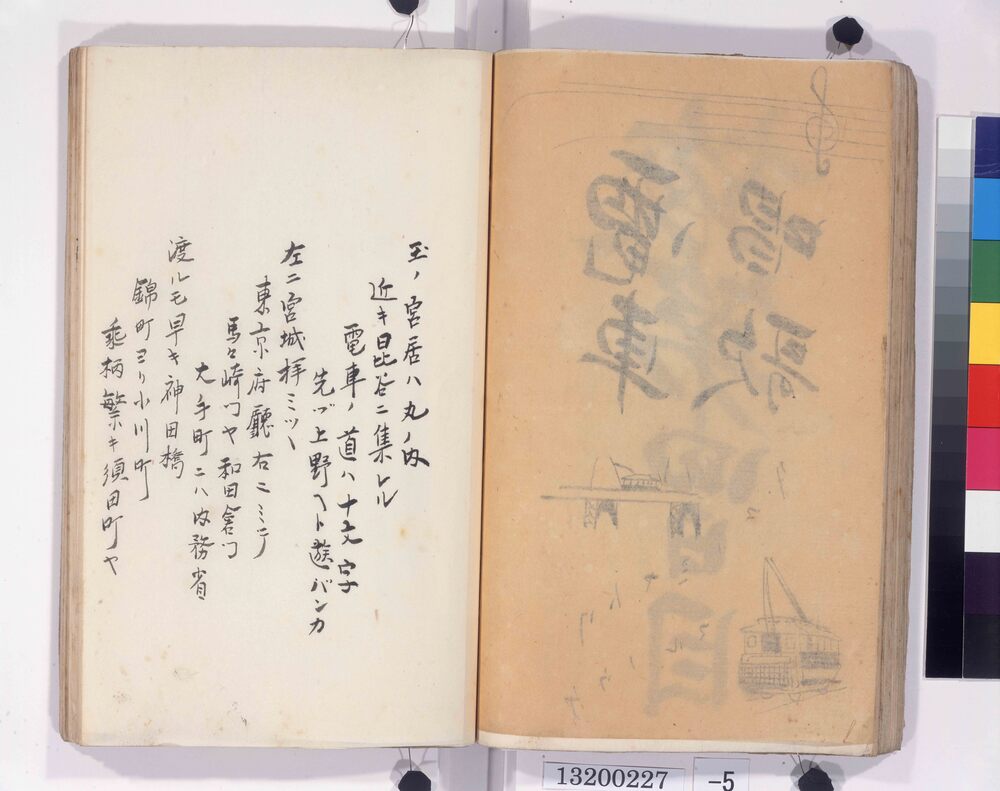 電車
唱歌
玉ノ宮居ハ丸ノ内
近キ日比谷ニ集レル
電車ノ道ハ十文字
先ヅ上野ヘト遊バンカ
左ニ宮城拝ミツヽ
東京府廳右ニミテ
馬々崎门ヤ和田倉门
大手町ニハ内務省
渡ルモ早キ神田橋
錦町ヨリ小川町
乗柄繁キ須田町ヤ
13200227
-5